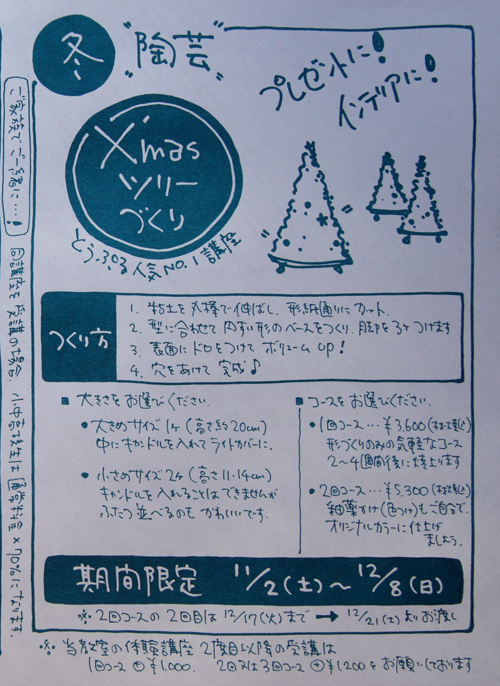 冬
"陶芸"
プレゼントに!
インテリアに!
X'mas
ツリー
づくり
とうぷうる人気NO.1講座
つくり方
1. 粘土を丸棒で伸ばし、形紙通りにカット。
2. 型に合わせて円すい形のベースをつくり、脚を3ヶつけます
3. 表面にドロをつけてボリュームUP!
4. 穴をあけて完成♪
■ 大きさをお選びください。
•大きめサイズ1ヶ(高さ約20cm)
中にキャンドルを入れてライトカバーに。
•小さめサイズ2ヶ(高さ11・14cm)
キャンドルを入れることはできませんが
ふたつ並べるのもかわいいです。
■ コースをお選びください。
•1回コース…¥3,600(材・焼込)
形づくりのみの気軽なコース
2〜4週間後に焼上ります
•2回コース…¥5,300(材・焼込)
釉薬がけ(色つけ)もご自分で。
オリジナルカラーに仕上げ
ましょう。
期間限定 11/2(土)〜12/8(日)
※2回コースの2回目は12/17(火)まで → 12/21(土)よりお渡し
※当教室の体験講座2度目以降の受講は
1回コース⊕¥1,000. 2回又は3回コース⊕¥1,200をお願いしております。
ご家族でご一緒に…!
同講座を受講の場合、小中高校生は通常料金×70%になります。